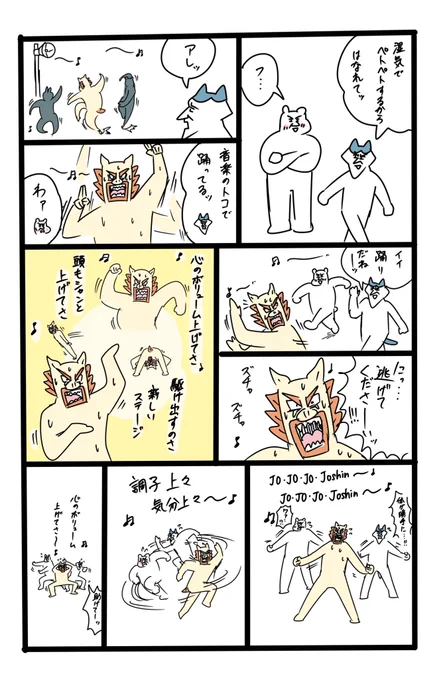 湿気で
ペトペトするから
はなれてッ
フ…
アレッ
音楽のトコで
踊ってるッ
わァ
イイ
踊り
だねーッ
にっ…
逃げて
くださーー
ズチャ
ズチャ
心のボリューム上げてさ
頭もシャンと
上げてさ
駆け出すのさ
新しい
ステージ
JO・JO・JO・Joshin〜♪
JO・JO・JO・Joshin〜
体が勝手に…!!
調子上々
気分上々〜♪
心のボリューム
上げてさ〜♪
助けてーッ